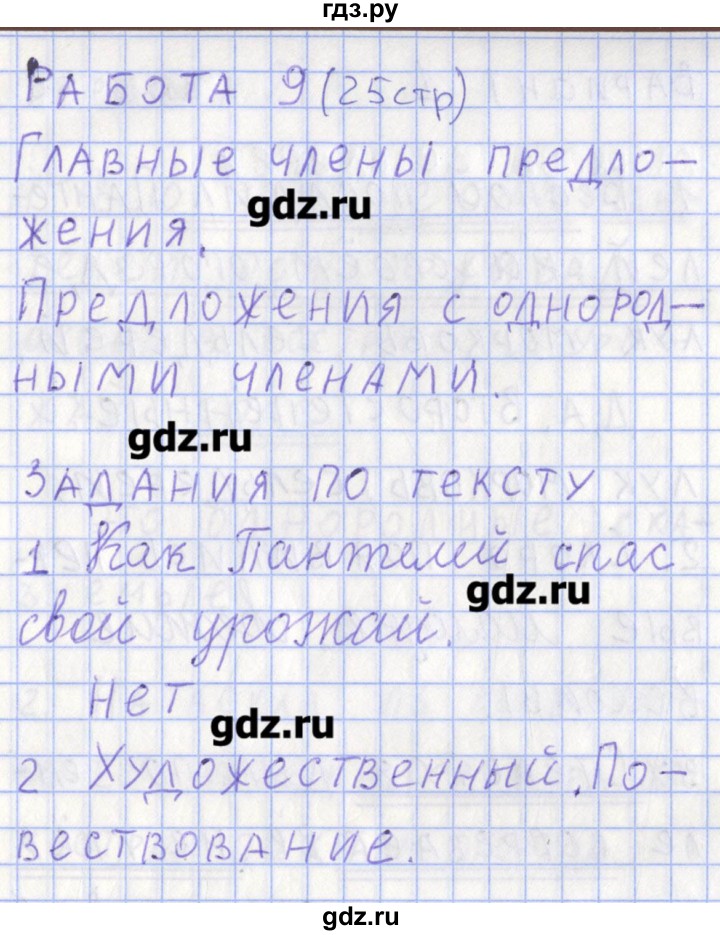 гдз.ру
РАБОТА 9 (25стр)
Главные члены предло-
gdz.ru
жения.
Предложения с однород-
ными членами.
gdz.ru
Задания по тексту
1 Как Пантелей спас
gdz.ru
свой урожай.
нет
gdz.ru
2 Художественный. По-
вествование.
gdz.ru